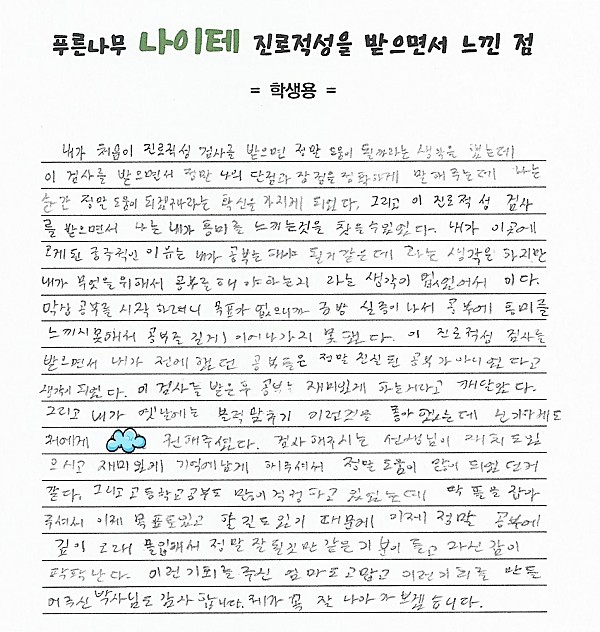 푸른나무 나이테 진로적성을 받으면서 느낀 점
= 학생용 =
내가 처음이 진로적성 검사를 받으면 정말 도움이 될까라는 생각을 했는데
이 검사를 받으면서 정말 나의 단점과 장점을 정확하게 말해주는데 나는
순간 정말 도움이 되겠구나라는 확신을 가지게 되었다. 그리고 이 진로적성 검사
를 받으면서 나는 내가 흥미를 느끼는것을 찾을수있었다. 내가 이곳에
오게된 궁극적인 이유는 내가 공부는 해야 될거같은데 라는 생각은 하지만
내가 무엇을위해서 공부를 해야하는지 라는 생각이 없었어서 이다.
막상 공부를 시작 하려니 목표가 없으니까 금방 실증이나서 공부에 흥미를
느끼지못해서 공부를 깊게 이어나가지 못했다. 이 진로적성 검사를
받으면서 내가 전에했던 공부들은 정말 진실된 공부가아니였다고
생각이 되었다. 이 검사를 받은후 공부는 재미있게 하는거라고 깨달았다.
그리고 내가 옛날에는 블럭맞추기 이런것을 좋아했었는데 신기하게도
저에게 권해주셨다. 검사해주시는 선생님이 재치도있
으시고 재미있게 기억에남게 해주셔서 정말 도움이 많이 되었던거
같다. 그리고고등학교공부도 많이걱정하고 있었는데 딱 틀을 잡아
주셔서 이제 목표도있고 할 진도있기 때문에 이제 정말 공부에
깊이 오래 몰입해서 정말 잘될것만 같은기분이 들고 자신감이
팍팍난다. 이런기회를주신 엄마도고맙고 이런기회를 만들
어주신박사님도감사합니다. 제가 꼭 잘 나아가보겠습니다.